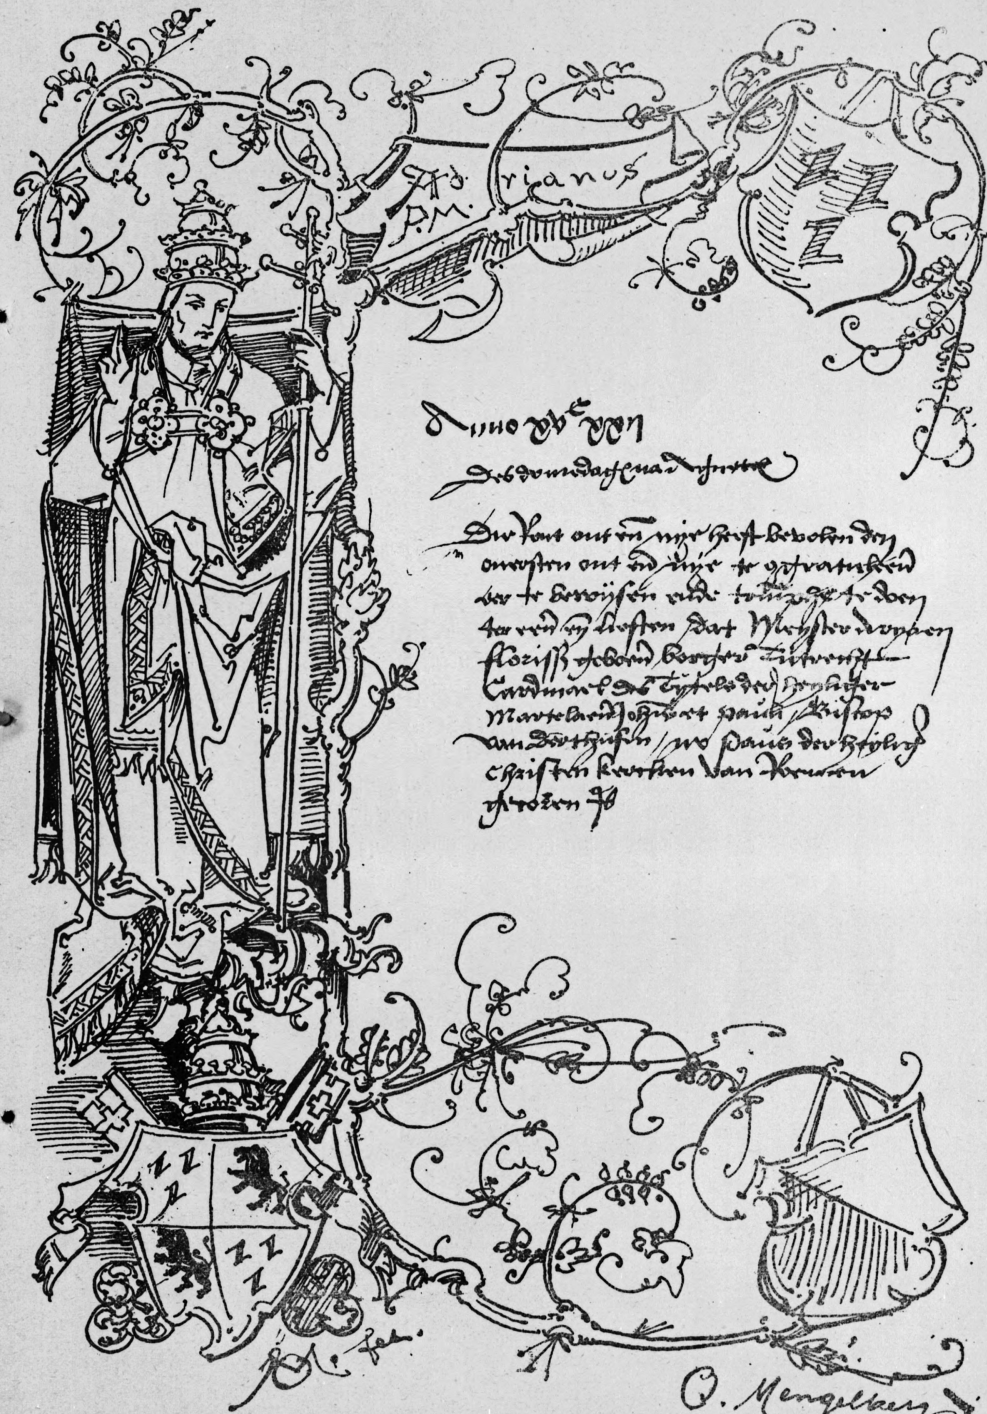 Adrianus
P.M.
Anno xvc xxij
Des donredages na Agneten
Die Raet out en nye heeft bevolen den
oversten out en nye te
ter te bewysen ende triumphe te doen
ter eeren en lieften dat Meyster Aryaen
Floriss geboern borger Tutrecht
Cardinael des Tytels der heyliger
Martelaern Joh et Pauli Biscop
van Derthusen, nv Paus der heyliger
christen kercken van Roemen
gecoren is
fec.
O. Mengelberg